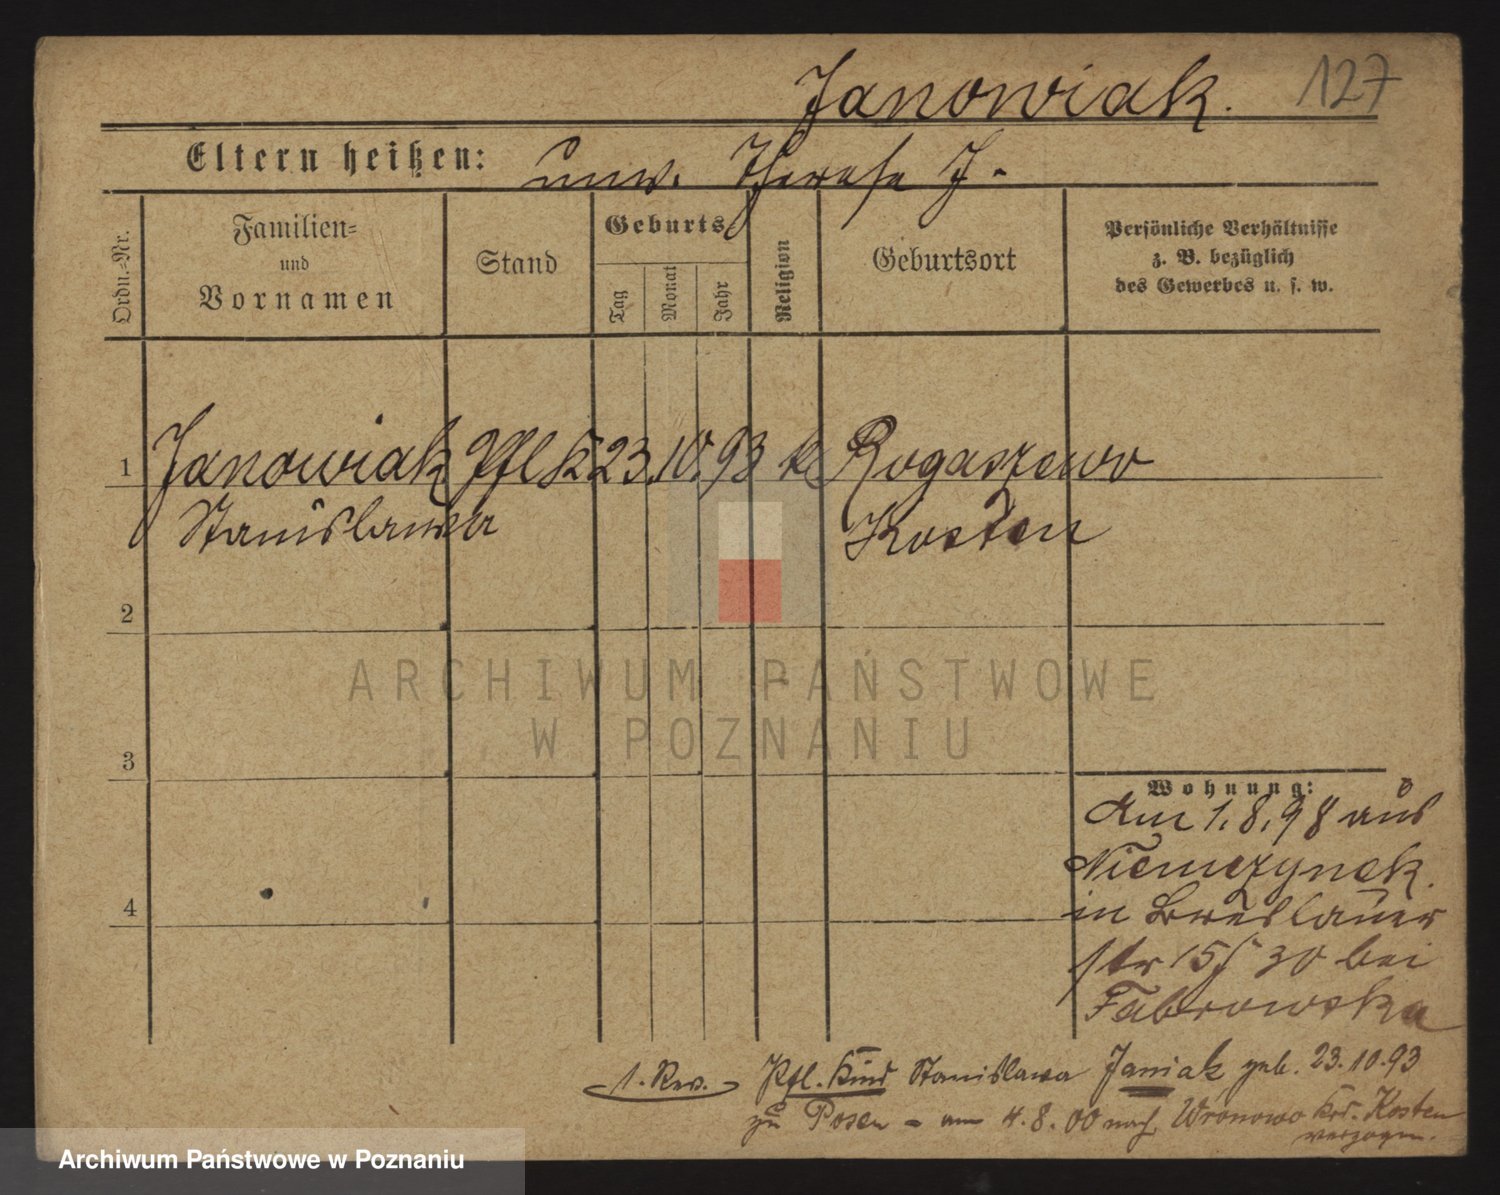 Janowiak. 127
Eltern heißen: unv. Therese J.
Ordn.-Nr.
Familien-
und
Vornamen
Stand
Geburts
Tag
Monat
Jahr
Religion
Geburtsort
Persönliche Verhältnisse
z. B. bezüglich
des Gewerbes u. s. w.
1 Janowiak Pfl K 23. 10. 93 k Rogaszewo
Stanislawa Kosten
2
3
4
ARCHIWUM PAŃSTWOWE
W POZNANIU
Wohnung:
Am 1.8.98 aus
Niemczynek.
in Breslauer
str 15 30 bei
Fabrowska
1. Rev. Pfl. Kind Stanislawa Janiak geb. 23.10.93
zu Posen - am 4.8.00 nach Wronowo Krs. Kosten
verzogen.
Archiwum Państwowe w Poznaniu